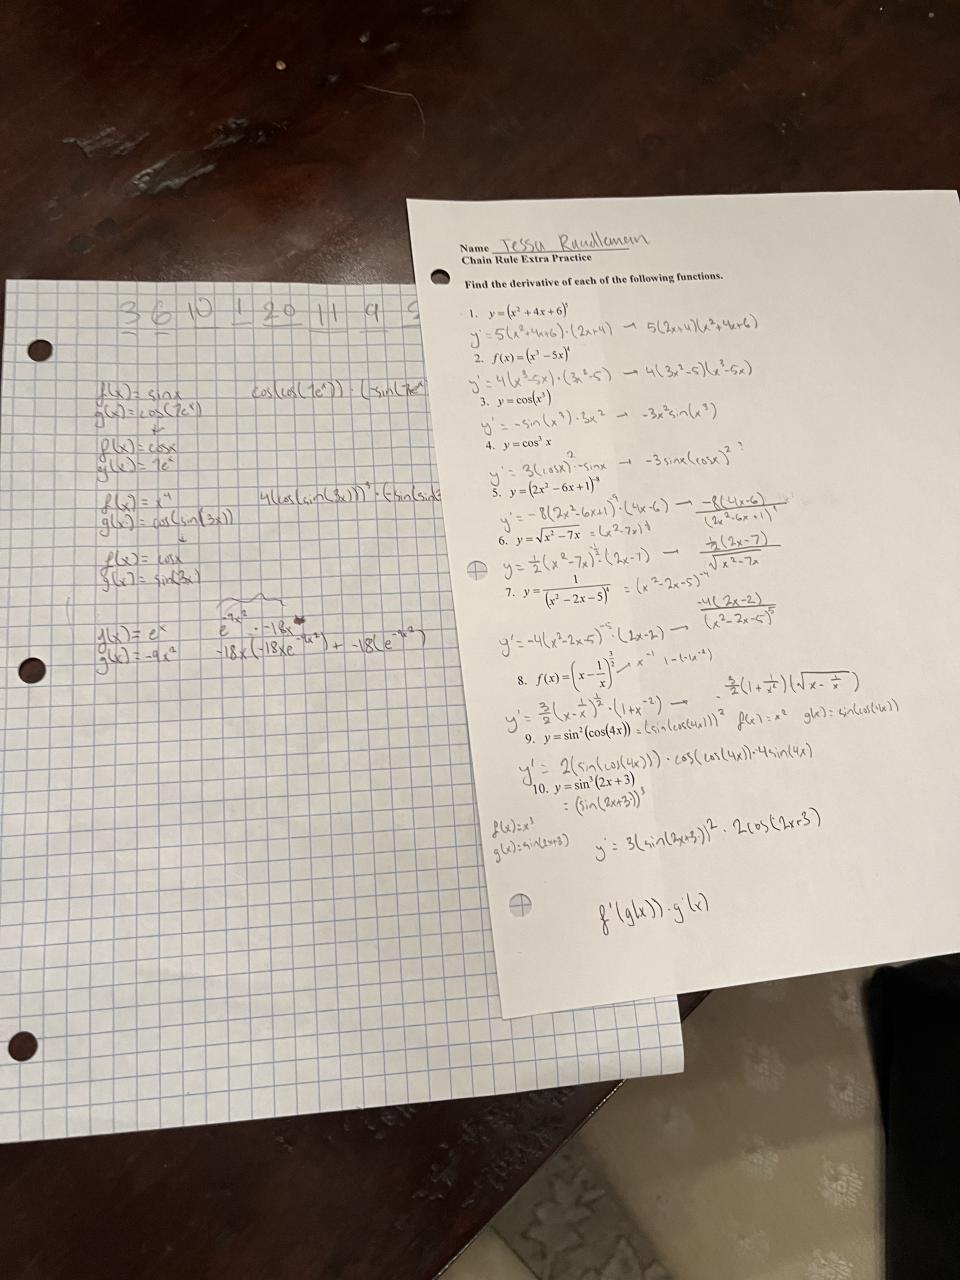 3 6 10 1 20 11 9
f(x) = sinx cos(cos(7eˣ)) · (-sin(7eˣ
g(x) = cos(7eˣ)
f(x) = cosx
g(x) = 7eˣ
f(x) = x⁴ 4(cos(sin(3x)))³ · (-sin(sin3
g(x) = cos(sin(3x))
f(x) = cosx
g(x) = sin(3x)
f(x) = eˣ e^(-9x²) · -18x
g(x) = -9x² -18x(-18xe^(-9x²)) + -18(e^(-9x²))
Name Tessa Randleman
Chain Rule Extra Practice
Find the derivative of each of the following functions.
1. y = (x² + 4x + 6)⁵
y' = 5(x²+4x+6)·(2x+4) → 5(2x+4)(x²+4x+6)
2. f(x) = (x³ − 5x)⁴
y' = 4(x³-5x)·(3x²-5) → 4(3x²-5)(x³-5x)
3. y = cos(x³)
y' = -sin(x³)·3x² → -3x²sin(x³)
4. y = cos³ x
y' = 3(cosx)²·-sinx → -3sinx(cosx)² ?
5. y = (2x² − 6x + 1)⁻⁸
y' = -8(2x²-6x+1)⁻⁹·(4x-6) → -8(4x-6)/(2x²-6x+1)⁹
6. y = √(x² − 7x) = (x²-7x)^½
y = ½(x²-7x)^(-½)·(2x-7) → ½(2x-7)/√(x²-7x)
7. y = 1/(x² − 2x − 5)⁴ = (x²-2x-5)⁻⁴
y' = -4(x²-2x-5)⁻⁵·(2x-2) → -4(2x-2)/(x²-2x-5)⁵
8. f(x) = (x − 1/x)^(3/2) x⁻¹ 1-(-x⁻²)
y' = 3/2(x-1/x)^½·(1+x⁻²) → 3/2(1+1/x²)(√(x-1/x))
9. y = sin²(cos(4x)) = (sin(cos(4x)))² f(x) = x² g(x) = sin(cos(4x))
y' = 2(sin(cos(4x)))·cos(cos(4x))·-4sin(4x)
10. y = sin³(2x + 3)
= (sin(2x+3))³
f(x) = x³
g(x) = sin(2x+3) y' = 3(sin(2x+3))² · 2cos(2x+3)
f'(g(x))·g'(x)